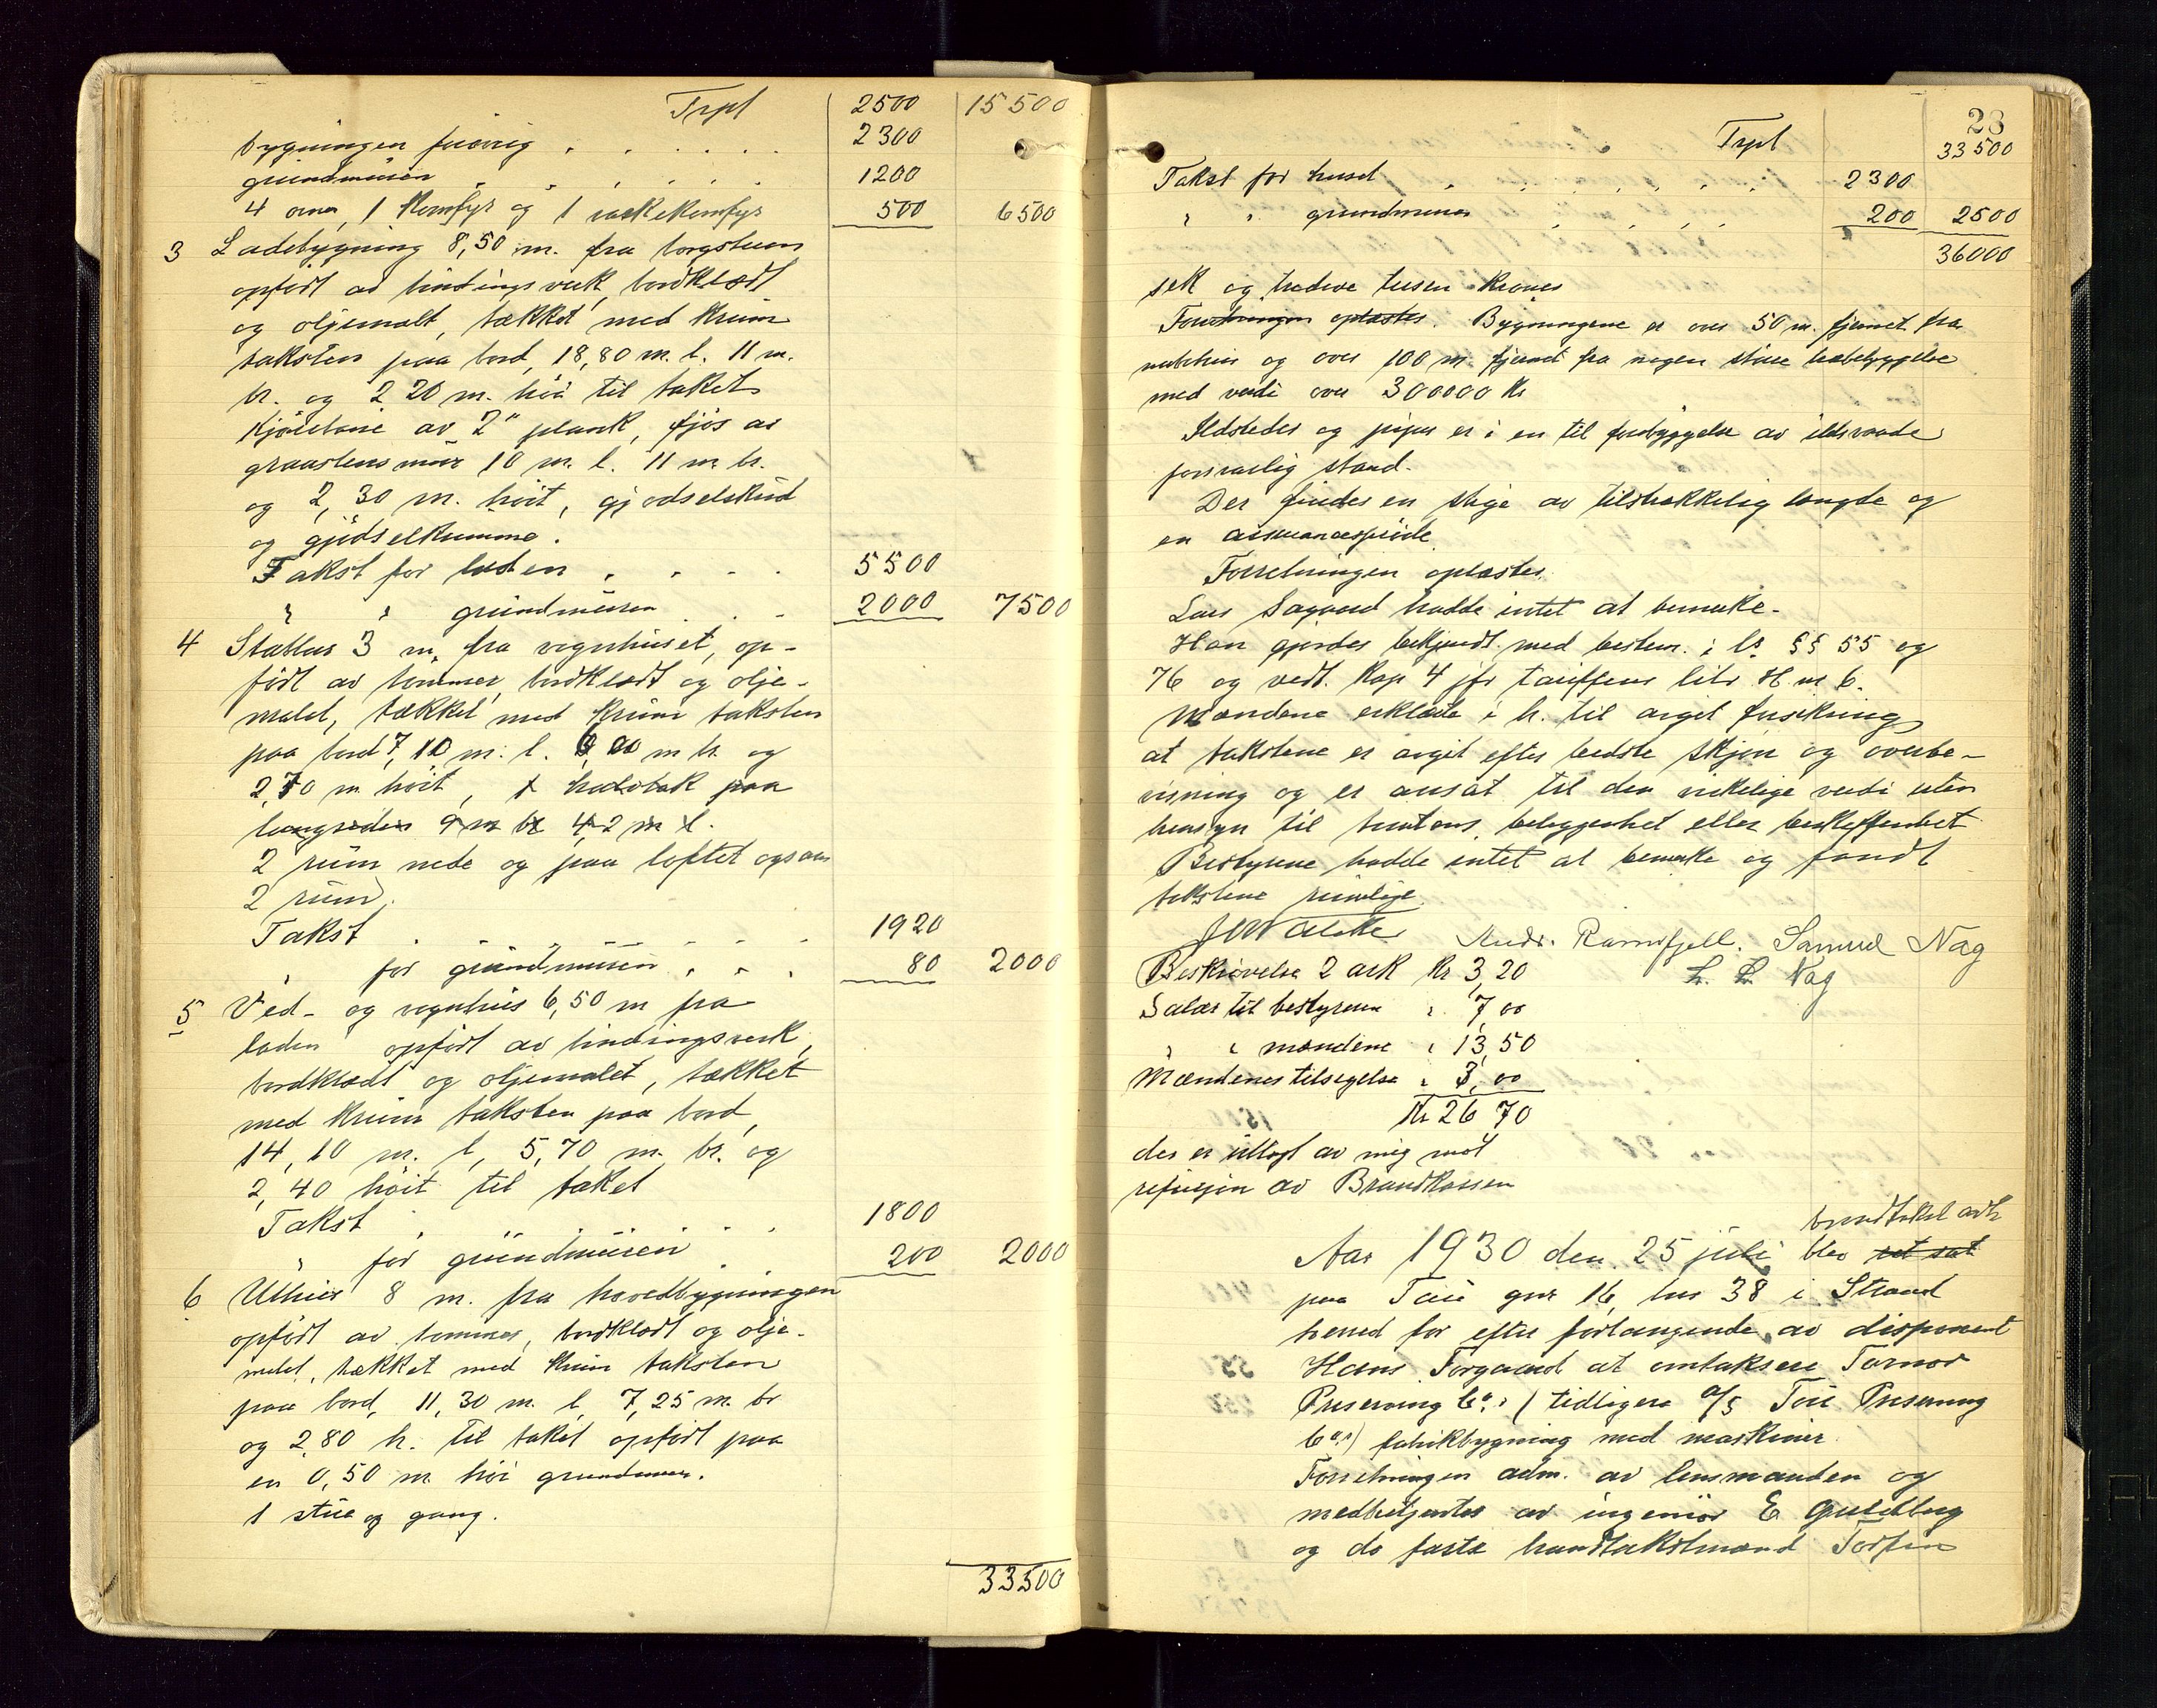 Trpt 2500 15500
bygningen forøvrig . . . . . 2300
grundmuren . . . . . . 1200
4 ovner, 1 komfyr og 1 vaskekomfyr 500 6500
3 Ladebygning 8,50 m. fra borgstuen
opført av bindingsverk, bordklædt
og oljemalt, tækket med krum
taksten paa bord, 18,80 m. l. 11 m.
br. og 2 20 m. høi til taket
kjørebane av 2" plank, fjøs av
graastensmur 10 m. l. 11 m. br.
og 2,30 m. høit, gjødselskud
og gjødselkumme.
Takst for laden . . . . 5500
" " grundmuren . . 2000 7500
4 Stabbur 3 m. fra vognhuset, op-
ført av tømmer, bordklædt og olje-
malet, tækket med krum taksten
paa bord 7,10 m. l. 6,00 m br. og
2,70 m høit, 1 halvtak paa
langsiden 9 m br 4,2 m l.
2 rum nede og paa loftet ogsaa
2 rum.
Takst . . . . . . . 1920
" for grundmuren . . . 80 2000
5 Ved- og vognhus 6,50 m fra
laden opført av bindingsverk,
bordklædt og oljemalet, tækket
med krum taksten paa bord,
14,10 m. l, 5,70 m. br. og
2,40 høit til taket
Takst . . . . . . 1800
" for grundmuren . 200 2000
6 Uthus 8 m. fra hovedbygningen
opført av tømmer, bordklædt og olje-
malet, tækket med krum taksten
paa bord, 11,30 m. l, 7,25 m. br
og 2,80 h. til taket opført paa
en 0,50 m. høi grundmur.
1 stue og gang.
33500
28
Trpt 33500
Takst for huset . . . . . . . 2300
" " grundmuren . . . . 200 2500
36000
seks og tredve tusen kroner
Forretningen oplæstes. Bygningene er over 50 m. fjernet fra
nabohus og over 100 m. fjernet fra nogen større træbebyggelse
med verdi over 300000 kr
Ildsteder og piper er i en til forebyggelse av ildsvaade
forsvarlig stand.
Der findes en stige av tilstrækkelig længde og
en assurancesprøite.
Forretningen oplæstes.
Lars Sagaard hadde intet at bemerke.
Han gjordes bekjendt med bestem. i l. §§ 55 og
76 og vedt. kap 4 jfr tariffens litr H. nr 6.
Mændene erklærte i h. til avgit forsikring
at takstene er avgit efter bedste skjøn og overbe-
visning og er ansat til den virkelige verdi uten
hensyn til tomtens beliggenhet eller beskaffenhet
Bestyreren hadde intet at bemerke og fandt
takstene rimelige.
Andr. Ramsfjell. Samuel Nag
Beskrivelse 2 ark Kr 3,20 L. L Nag
Salær til bestyreren " 7,00
" " mændene " 13,50
Mændenes tilsigelse " 3,00
Kr 26 70
der er utlagt av mig mot
refusjon av Brandkassen
brandtakst avh
Aar 1930 den 25 juli blev ret sat
paa Tau gnr 16, bnr 38 i Strand
herred for efter forlangende av disponent
Hans Torgaard at omtaksere Tarnor
Preserving Co. (tidligere A/S Tau Preserving
Co.) fabrikbygning med maskiner.
Forretningen adm. av lensmanden og
medbetjentes av ingeniør E Guldberg
og de faste brandtakstmænd Torfin